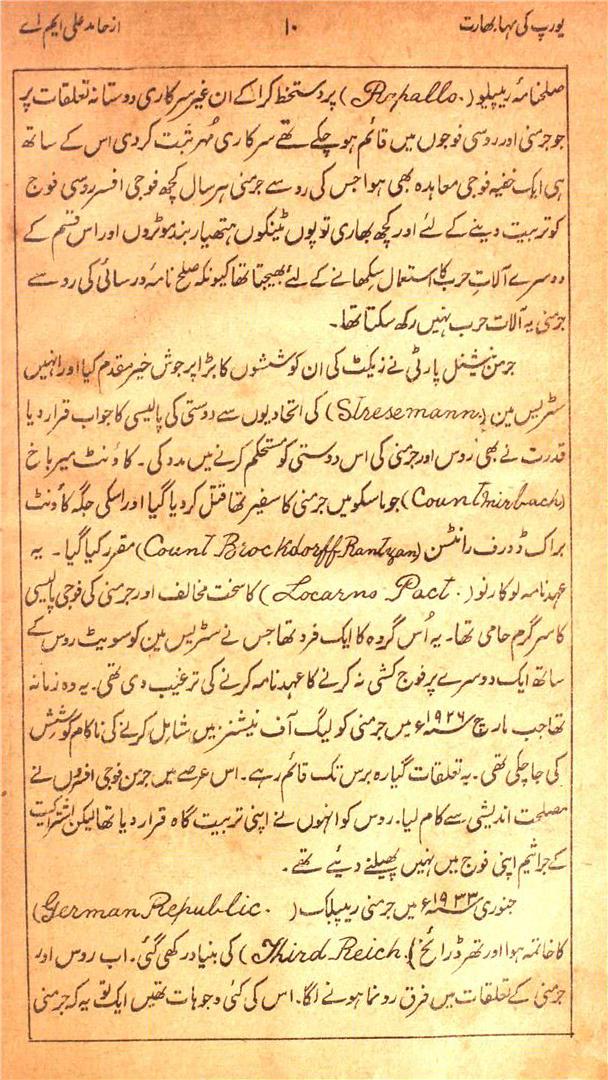 یورپ کی مہابھارت
۱۰
از حامد علی ایم اے
صلحنامۂ ریپلیو (Rapallo.) پر دستخط کرا کے ان غیر سرکاری دوستانہ تعلقات پر
جو جرمنی اور روسی فوجوں میں قائم ہو چکے تھے سرکاری مُہر ثبت کردی اس کے ساتھ
ہی ایک خفیہ فوجی معاہدہ بھی ہوا جس کی رو سے جرمنی ہر سال کچھ فوجی افسر روسی فوج
کو تربیت دینے کے لئے اور کچھ بھاری توپوں ٹینکوں ہتھیار بند موٹروں اور اس قسم کے
دوسرے آلاتِ حرب کا استعمال سکھانے کے لئے بھیجتا تھا کیونکہ صلح نامۂ ورسائی کی رو سے
جرمنی یہ آلات حرب نہیں رکھ سکتا تھا۔
جرمن نیشنل پارٹی نے زیکٹ کی ان کوششوں کا بڑا پرجوش خیر مقدم کیا اور انہیں
سٹریس مین (Stresemann.) کی اتحادیوں سے دوستی کی پالیسی کا جواب قرار دیا
قدرت نے بھی روس اور جرمنی کی اس دوستی کو مستحکم کرنے میں مدد کی۔ کاؤنٹ میرباخ
(Count mirbach) جو ماسکو میں جرمنی کا سفیر تھا قتل کر دیا گیا اور اسکی جگہ کاؤنٹ
براک ڈورف رانٹسن (Count Brockdorff Rantzan) مقرر کیا گیا۔ یہ
عہدنامہ لوکارنو (Locarno Pact.) کا سخت مخالف اور جرمنی کی فوجی پالیسی
کا سرگرم حامی تھا۔ یہ اُس گروہ کا ایک فرد تھا جس نے سٹریس مین کو سویٹ روس کے
ساتھ ایک دوسرے پر فوج کشی نہ کرنے کا عہدنامہ کرنے کی ترغیب دی تھی۔ یہ وہ زمانہ
تھا جب مارچ ۱۹۲۶ء میں جرمنی کو لیگ آف نیشنز میں شامل کرنے کی ناکام کوشش
کی جا چکی تھی۔ یہ تعلقات گیارہ برس تک قائم رہے۔ اس عرصے میں جرمن فوجی افسروں نے
مصلحت اندیشی سے کام لیا۔ روس کو انہوں نے اپنی تربیت گاہ قرار دیا تھا لیکن اشتراکیت
کے جراثیم اپنی فوج میں نہیں پھیلنے دیئے تھے۔
جنوری ۱۹۳۳ء میں جرمنی ریپبلک (German Republic.)
کا خاتمہ ہوا اور تھرڈ رائخ (Third Reich.) کی بنیاد رکھی گئی۔ اب روس اور
جرمنی کے تعلقات میں فرق رونما ہونے لگا۔ اس کی کئی وجوہات تھیں ایک تو یہ کہ جرمنی